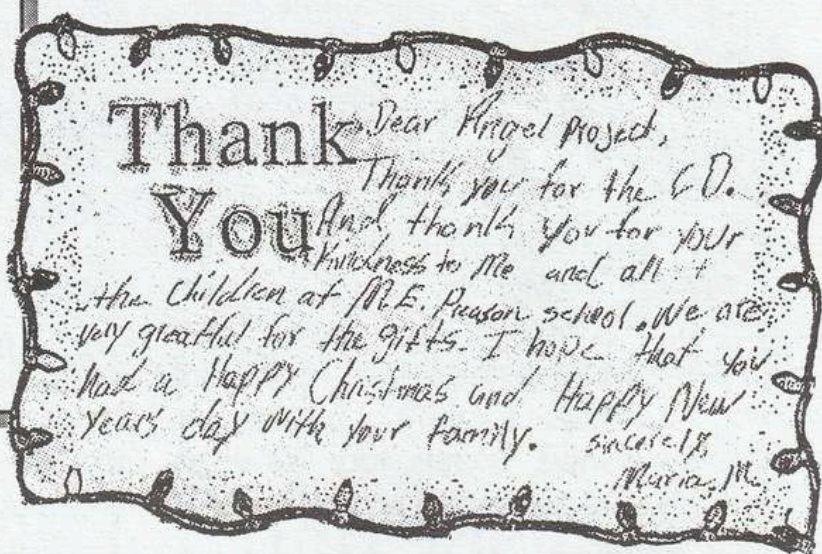 Thank
You
Dear Angel Project,
Thank you for the CD.
And thank you for your
kindness to me and all
the children at M.E. school. We are
very greatful for the gifts. I hope that you
had a Happy Christmas and Happy New
years day with your family. sincerely,
Maria M.